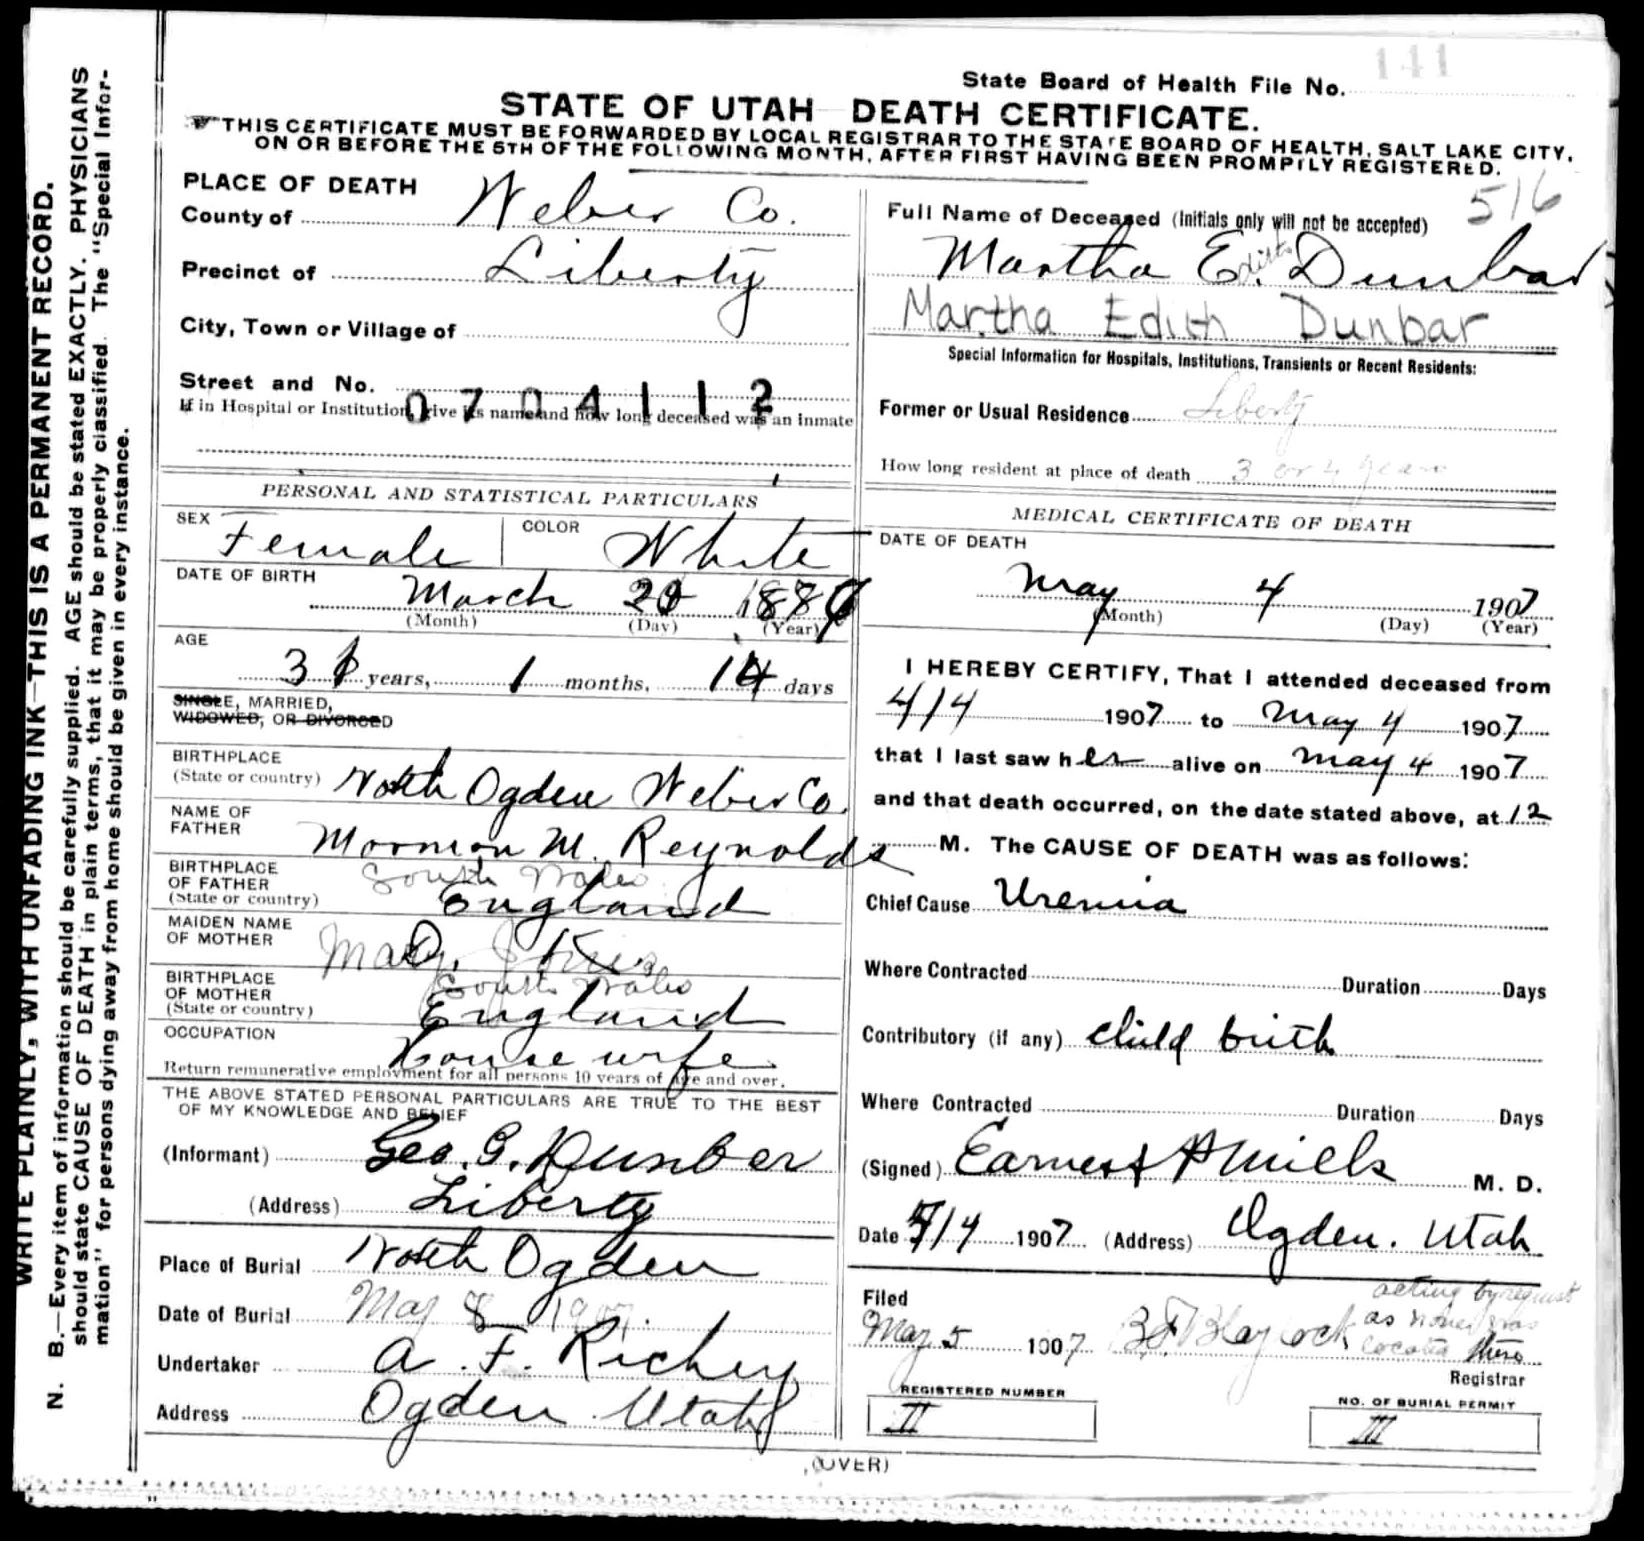 141
State Board of Health File No.
STATE OF UTAH DEATH CERTIFICATE.
THIS CERTIFICATE MUST BE FORWARDED BY LOCAL REGISTRAR TO THE STATE BOARD OF HEALTH, SALT LAKE CITY,
ON OR BEFORE THE 5TH OF THE FOLLOWING MONTH, AFTER FIRST HAVING BEEN PROMPTLY REGISTERED.
WRITE PLAINLY, WITH UNFADING INK—THIS IS A PERMANENT RECORD.
N. B.—Every item of information should be carefully supplied. AGE should be stated EXACTLY. PHYSICIANS
should state CAUSE OF DEATH in plain terms, that it may be properly classified. The "Special Infor-
mation" for persons dying away from home should be given in every instance.
PLACE OF DEATH
County of Weber Co.
Precinct of Liberty
City, Town or Village of
Street and No.
0704112
If in Hospital or Institution, give its name and how long deceased was an inmate
PERSONAL AND STATISTICAL PARTICULARS
SEX Female COLOR White
DATE OF BIRTH March
(Month) (Day) (Year)
AGE
3 years, 1 months, 14 days
SINGLE, MARRIED,
WIDOWED, OR DIVORCED
BIRTHPLACE
(State or country) North Ogden Weber Co.
NAME OF
FATHER Mormon M. Reynolds
BIRTHPLACE
OF FATHER South Wales
(State or country) England
MAIDEN NAME
OF MOTHER Mary
BIRTHPLACE
OF MOTHER South Wales
(State or country) England
OCCUPATION
House wife
Return remunerative employment for all persons 10 years of age and over.
THE ABOVE STATED PERSONAL PARTICULARS ARE TRUE TO THE BEST
OF MY KNOWLEDGE AND BELIEF
(Informant) Geo. G. Dunber
(Address) Liberty
Place of Burial North Ogden
Date of Burial May 1907
Undertaker A. F. Richey
Address Ogden Utah
516
Full Name of Deceased (Initials only will not be accepted)
Martha E. Edith Dunbar
Martha Edith Dunbar
Special Information for Hospitals, Institutions, Transients or Recent Residents:
Former or Usual Residence Liberty
How long resident at place of death 3 or 4 years
MEDICAL CERTIFICATE OF DEATH
DATE OF DEATH
May 4 1907
(Month) (Day) (Year)
I HEREBY CERTIFY, That I attended deceased from
4/4 1907 to May 4 1907
that I last saw her alive on May 4 1907
and that death occurred, on the date stated above, at 12
M. The CAUSE OF DEATH was as follows:
Chief Cause Uremia
Where Contracted Duration Days
Contributory (if any) Child birth
Where Contracted Duration Days
(Signed) Earnest P Mills M. D.
Date 5/4 1907 (Address) Ogden. Utah
Filed
May 5 1907 Blaylock acting by request as none was located there
Registrar
REGISTERED NUMBER
II
NO. OF BURIAL PERMIT
II
(OVER)